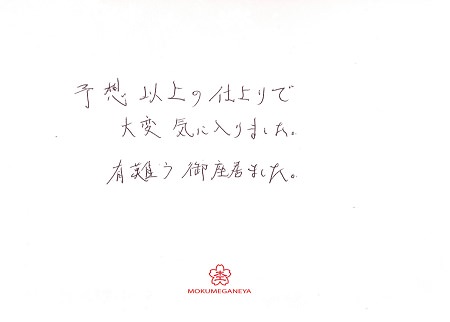 予想以上の仕上りで
大変気に入りました。
有難う御座居ました。
MOKUMEGANEYA